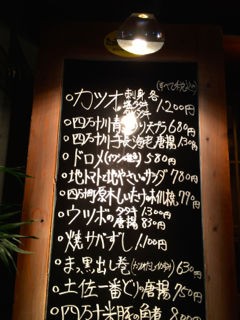 (すべて税込)
カツオ 刺身 塩タタキ タタキ 各1200円
四万十川青さのり天ぷら680円
四万十川手長海老唐揚
ドロメ(イワシの稚魚)580円
地トマトと地やさいのサラダ780円
四万十町原木しいたけホイル焼770円
ウツボ タタキ1300円 唐揚830円
焼サバずし1,100円
まっ黒出し巻 630円
土佐一番どりの唐揚750円
四万十米豚の角煮800円